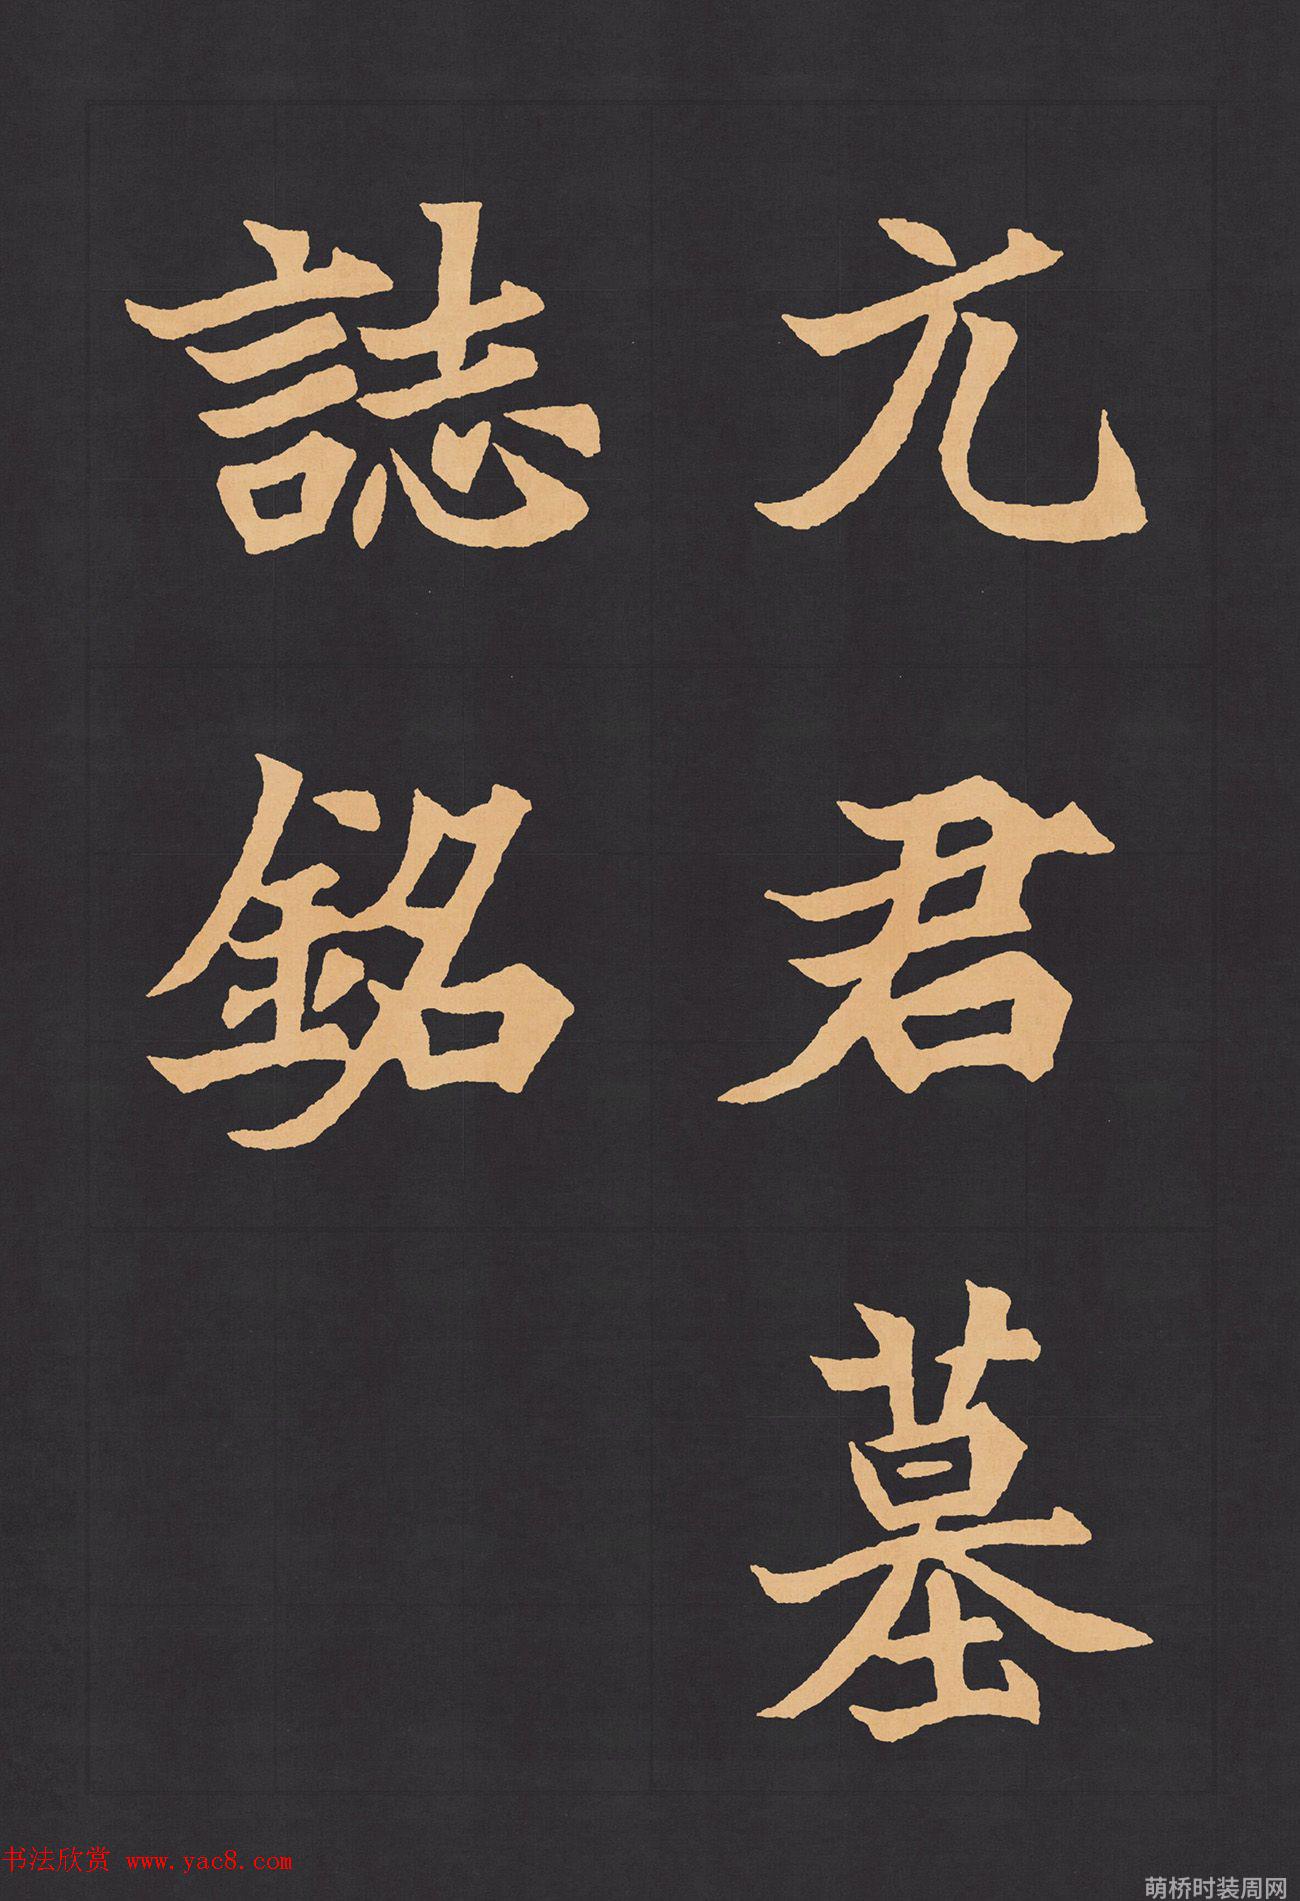 元君墓
誌銘
书法欣赏 www.yac8.com
萌桥时装周网